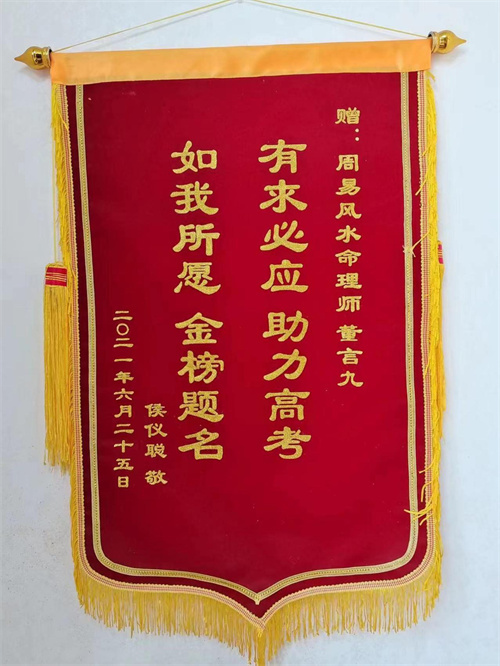 赠：周易风水命理师 董言九
有求必应 助力高考
如我所愿 金榜题名
侯仪聪 敬
二〇二一年六月二十五日